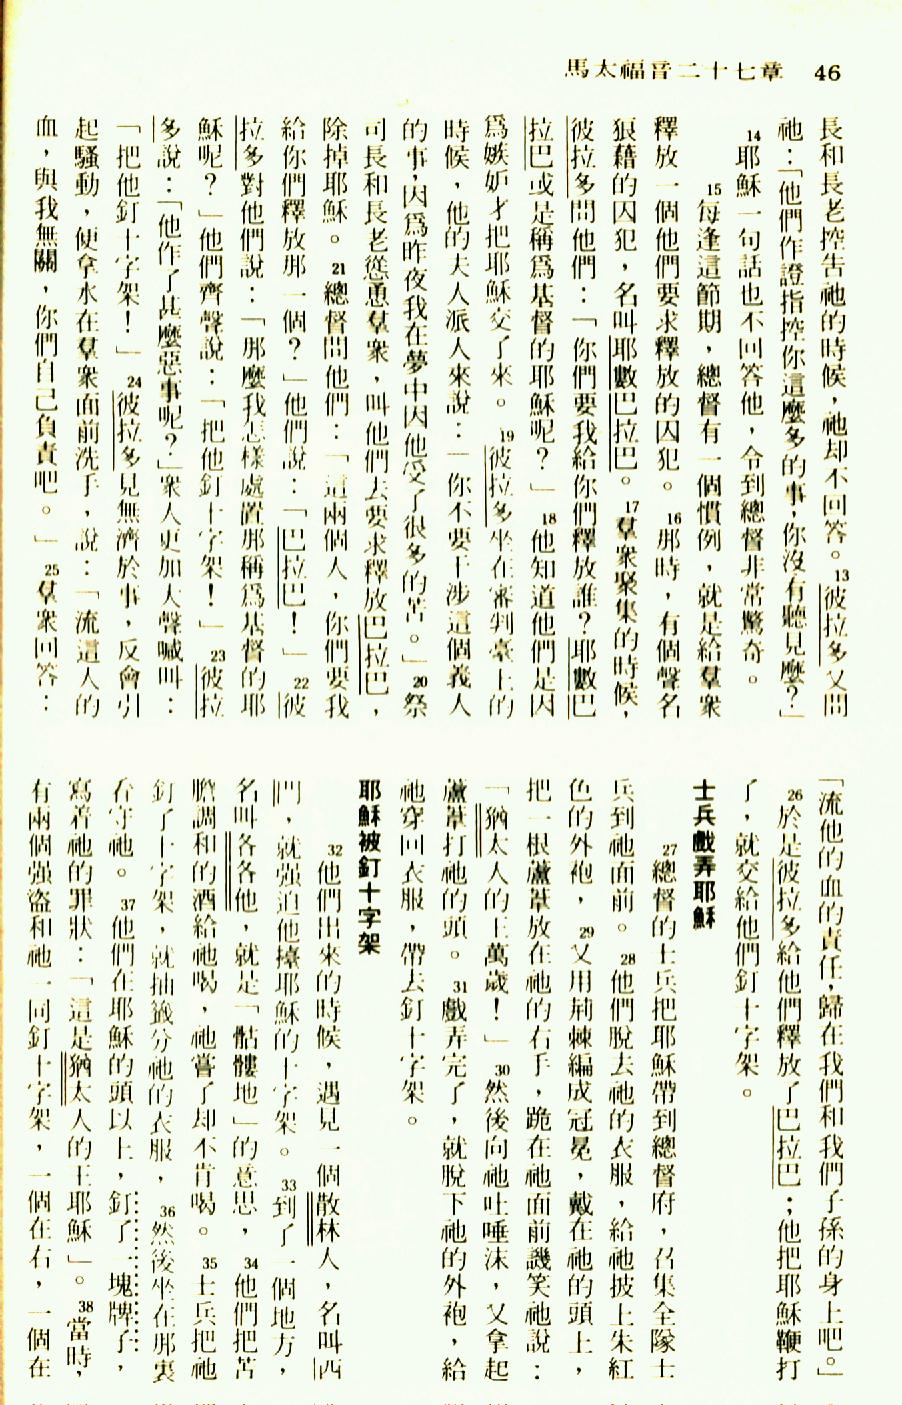 馬太福音二十七章　46
長和長老控告祂的時候，祂却不回答。13彼拉多又問
祂：「他們作證指控你這麼多的事，你沒有聽見麼？」
14耶穌一句話也不回答他，令到總督非常驚奇。
15每逢這節期，總督有一個慣例，就是給羣衆
釋放一個他們要求釋放的囚犯。16那時，有個聲名
狼藉的囚犯，名叫耶數巴拉巴。17羣衆聚集的時候，
彼拉多問他們：「你們要我給你們釋放誰？耶數巴
拉巴或是稱爲基督的耶穌呢？」18他知道他們是因
爲嫉妒才把耶穌交了來。19彼拉多坐在審判臺上的
時候，他的夫人派人來說：「你不要干涉這個義人
的事，因爲昨夜我在夢中因他受了很多的苦。」20祭
司長和長老慫恿羣衆，叫他們去要求釋放巴拉巴，
除掉耶穌。21總督問他們：「這兩個人，你們要我
給你們釋放那一個？」他們說：「巴拉巴！」22彼
拉多對他們說：「那麼我怎樣處置那稱爲基督的耶
穌呢？」他們齊聲說：「把他釘十字架！」23彼拉
多說：「他作了甚麼惡事呢？」衆人更加大聲喊叫：
「把他釘十字架！」24彼拉多見無濟於事，反會引
起騷動，便拿水在羣衆面前洗手，說：「流這人的
血，與我無關，你們自己負責吧。」25羣衆回答：
「流他的血的責任，歸在我們和我們子孫的身上吧。」
26於是彼拉多給他們釋放了巴拉巴；他把耶穌鞭打
了，就交給他們釘十字架。
士兵戲弄耶穌
27總督的士兵把耶穌帶到總督府，召集全隊士
兵到祂面前。28他們脫去祂的衣服，給祂披上朱紅
色的外袍，29又用荊棘編成冠冕，戴在祂的頭上，
把一根蘆葦放在祂的右手，跪在祂面前譏笑祂說：
「猶太人的王萬歲！」30然後向祂吐唾沫，又拿起
蘆葦打祂的頭。31戲弄完了，就脫下祂的外袍，給
祂穿回衣服，帶去釘十字架。
耶穌被釘十字架
32他們出來的時候，遇見一個散林人，名叫西
門，就强迫他擡耶穌的十字架。33到了一個地方，
名叫各各他，就是「骷髏地」的意思，34他們把苦
膽調和的酒給祂喝，祂嘗了却不肯喝。35士兵把祂
釘了十字架，就抽籤分祂的衣服，36然後坐在那裏
看守祂。37他們在耶穌的頭以上，釘了一塊牌子，
寫着祂的罪狀：「這是猶太人的王耶穌」。38當時，
有兩個强盜和祂一同釘十字架，一個在右，一個在